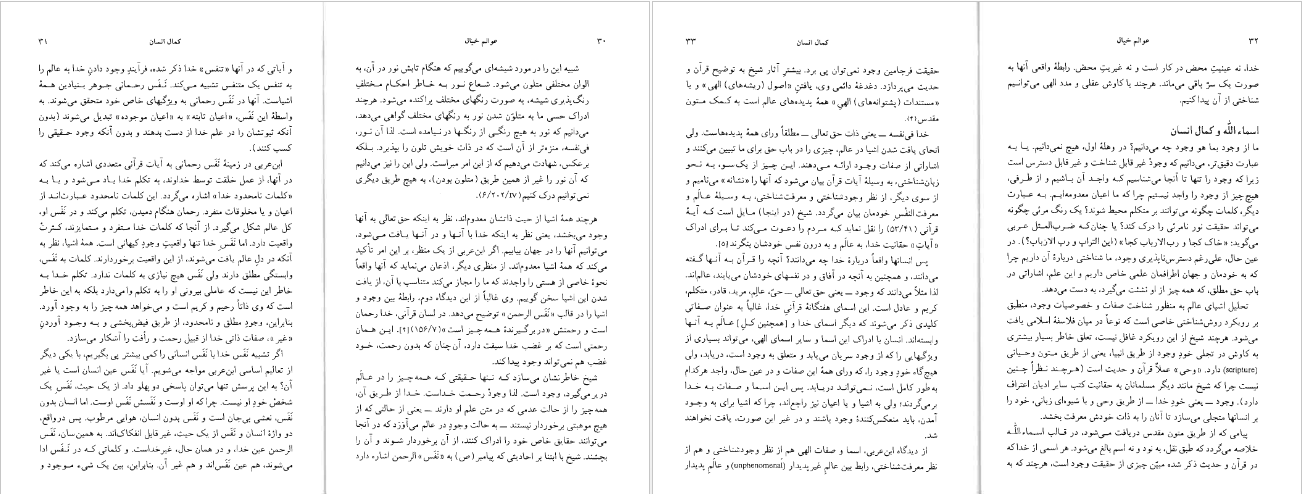 ۳۰ عوالم خیال
شبیه این را در مورد شیشه‌ای می‌گوییم که هنگام تابش نور در آن، به
الوان مختلفی متلون می‌شود. شعاع نور به خاطر احکام مختلفِ
رنگ‌پذیری شیشه، به صورت رنگهای مختلف پراکنده می‌شود. هرچند
ادراک حسی ما به متلوّن شدن نور به رنگهای مختلف گواهی می‌دهد،
می‌دانیم که نور به هیچ رنگی از رنگها در نیامده است. لذا آن نور،
فی‌نفسه، منزه‌تر از آن است که در ذات خویش تلون را بپذیرد. بلکه
برعکس، شهادت می‌دهیم که از این امر مبراست. ولی این را نیز می‌دانیم
که آن نور را غیر از همین طریق (متلون بودن)، به هیچ طریق دیگری
نمی‌توانیم درک کنیم (۶/۲۰۲/IV)
هرچند همهٔ اشیا از حیث ذاتشان معدوم‌اند، نظر به اینکه حق تعالی به آنها
وجود می‌بخشد، یعنی نظر به اینکه خدا با آنها و در آنها یافت می‌شود،
می‌توانیم آنها را در جهان بیابیم. اگر ابن‌عربی از یک منظر، بر این امر تأکید
می‌کند که همهٔ اشیا معدوم‌اند، از منظری دیگر، اذعان می‌نماید که آنها واقعاً
نحوهٔ خاصی از هستی را واجدند که ما را مجاز می‌کند متناسب با آن، از یافت
شدن این اشیا سخن گوییم. وی غالباً از این دیدگاه دوم، رابطهٔ بین وجود و
اشیا را در قالب «نَفَس الرحمن» توضیح می‌دهد. در لسان قرآنی، خدا رحمان
است و رحمتش «دربرگیرندهٔ همه چیز است» (۱۵۶/۷)[۲]. این همان
رحمتی است که بر غضب خدا سبقت دارد، آن‌چنان که بدون رحمت، خود
غضب هم نمی‌تواند وجود پیدا کند.
شیخ خاطرنشان می‌سازد که تنها حقیقتی که همه چیز را در عالَم
در بر می‌گیرد، وجود است. لذا وجودْ رحمت خداست. خدا از طریق آن،
همه چیز را از حالت عدمی که در متن علم او دارند ــ یعنی از حالتی که از
هیچ موهبتی برخوردار نیستند ــ به حالت وجودِ در عالم می‌آوَرَد که در آنجا
می‌توانند حقایق خاص خود را ادراک کنند، از آن برخوردار شوند و آن را
بچشند. شیخ با ابتنا بر احادیثی که پیامبر (ص) به «نَفَسِ» الرحمن اشاره دارد
کمال انسان ۳۱
و آیاتی که در آنها «تنفس» خدا ذکر شده، فرآیندِ وجود دادنِ خدا به عالم را
به تنفس یک متنفس تشبیه می‌کند. نَفَس رحمانی جوهر بنیادین همهٔ
اشیاست. آنها در نَفَس رحمانی به ویژگیهای خاص خود متحقق می‌شوند. به
واسطهٔ این نَفَس، «اعیان ثابته» به «اعیان موجوده» تبدیل می‌شوند (بدون
آنکه ثبوتشان را در علم خدا از دست بدهند و بدون آنکه وجود حقیقی را
کسب کنند).
ابن‌عربی در زمینهٔ نَفَس رحمانی به آیات قرآنی متعددی اشاره می‌کند که
در آنها، از عمل خلقت توسط خداوند، به تکلم خدا یاد می‌شود و یا به
«کلمات نامحدود خدا» اشاره می‌گردد. این کلمات نامحدود عبارت‌اند از
اعیان و یا مخلوقات منفرد. رحمان هنگام دمیدن، تکلم می‌کند و در نَفَس او،
کل عالم شکل می‌گیرد. از آنجا که کلمات خدا منفرد و متمایزند، کثرتْ
واقعیت دارد. اما نَفَس خدا تنها واقعیتِ وجودِ کیهانی است. همهٔ اشیا، نظر به
آنکه در دلِ عالم یافت می‌شوند، از این واقعیت برخوردارند. کلمات به نَفَس،
وابستگی مطلق دارند ولی نَفَس هیچ نیازی به کلمات ندارد. تکلم خدا به
خاطر این نیست که عاملی بیرونی او را به تکلم وا می‌دارد بلکه به این خاطر
است که وی ذاتاً رحیم و کریم است و می‌خواهد همه چیز را به وجود آورد.
بنابراین، وجودِ مطلق و نامحدود، از طریق فیض‌بخشی و به وجود آوردنِ
«غیر»، صفات ذاتی خدا از قبیل رحمت و رأفت را آشکار می‌سازد.
اگر تشبیه نَفَس خدا با نَفَس انسانی را کمی بیشتر پی بگیریم، با یکی دیگر
از تعالیم اساسی ابن‌عربی مواجه می‌شویم. آیا نَفَس عین انسان است یا غیر
آن؟ به این پرسش تنها می‌توان پاسخی دو پهلو داد. از یک حیث، نَفَس یک
شخصْ خودِ او نیست. چرا که او اوست و نَفَسش نَفَس اوست. اما انسان بدون
نَفَس، نعشی بی‌جان است و نَفَس بدون انسان، هوایی مرطوب. پس در واقع،
دو واژهٔ انسان و نَفَس از یک حیث، غیرقابل انفکاک‌اند. به همین‌سان، نَفَس
الرحمن عین خدا، و در همان حال، غیرخداست. و کلماتی که در نَفَس ادا
می‌شوند، هم عین نَفَس‌اند و هم غیر آن. بنابراین، بین یک شیء موجود و
۳۲ عوالم خیال
خدا، نه عینیتِ محض در کار است و نه غیریتِ محض. رابطهٔ واقعی آنها به
صورت یک سرّ باقی می‌ماند. هرچند با کاوش عقلی و مدد الهی می‌توانیم
شناختی از آن پیدا کنیم.
اسماء اللّه و کمال انسان
ما از وجود بما هو وجود چه می‌دانیم؟ در وهلهٔ اول، هیچ نمی‌دانیم. یا به
عبارت دقیق‌تر، می‌دانیم که وجودْ غیر قابل شناخت و غیر قابل دسترس است
زیرا که وجود را تنها تا آنجا می‌شناسیم که واجد آن باشیم و از طرفی،
هیچ چیز از وجود را واجد نیستیم چرا که ما اعیان معدومه‌ایم. به عبارت
دیگر، کلمات چگونه می‌توانند بر متکلم محیط شوند؟ یک رنگ مرئی چگونه
می‌تواند حقیقت نور نامرئی را درک کند؟ یا چنان‌که ضرب‌المثل عربی
می‌گوید: «خاک کجا و رب الارباب کجا» (این التراب و رب الارباب؟). در
عین حال، علی‌رغم دسترس‌ناپذیری وجود، ما شناختی دربارهٔ آن داریم چرا
که به خودمان و جهان اطرافمان علمی خاص داریم و این علم، اشاراتی در
باب حق مطلق، که همه چیز از او نشئت می‌گیرد، به دست می‌دهد.
تحلیل اشیای عالم به منظور شناخت صفات و خصوصیات وجود، منطبق
بر رویکرد روش‌شناختی خاصی است که نوعاً در میان فلاسفهٔ اسلامی یافت
می‌شود. هرچند شیخ از این رویکرد غافل نیست، تعلق خاطر بسیار بیشتری
به کاوش در تجلی خودِ وجود از طریق انبیا، یعنی از طریق متون وحیانی
(scripture) دارد. «وحی» عملاً قرآن و حدیث است (هرچند نظراً چنین
نیست چرا که شیخ مانند دیگر مسلمانان به حقانیت کتب سایر ادیان اعتراف
دارد). وجود ــ یعنی خودِ خدا ــ از طریق وحی و با شیوه‌ای زبانی، خود را
بر انسانها متجلی می‌سازد تا آنان را به ذات خودش معرفت بخشد.
پیامی که از طریق متون مقدس دریافت می‌شود، در قالب اسماء اللّه
خلاصه می‌گردد که طبق نقل، به نود و نه اسم بالغ می‌شود. هر اسمی از خدا که
در قرآن و حدیث ذکر شده مبیّن چیزی از حقیقت وجود است، هرچند که به
کمال انسان ۳۳
حقیقت فرجامین وجود نمی‌توان پی برد. بیشترِ آثار شیخ به توضیح قرآن و
حدیث می‌پردازد. دغدغهٔ دائمی وی، یافتنِ «اصول (ریشه‌های) الهی» و یا
«مستندات (پشتوانه‌های) الهیِ» همهٔ پدیده‌های عالم است به کمک متون
مقدس[۴].
خدا فی‌نفسه ــ یعنی ذات حق تعالی ــ مطلقاً ورای همهٔ پدیده‌هاست. ولی
انحای یافت شدن اشیا در عالم، چیزی را در باب حق برای ما تبیین می‌کنند و
اشاراتی از صفات وجود ارائه می‌دهند. این چیز از یک سو، به نحو
زبان‌شناختی، به وسیلهٔ آیات قرآن بیان می‌شود که آنها را «نشانه» می‌نامیم و
از سوی دیگر، از نظر وجودشناختی و معرفت‌شناختی، به وسیلهٔ عالَم و
معرفت‌النّفْسِ خودمان بیان می‌گردد. شیخ (در اینجا) مایل است که آیهٔ
قرآنی (۵۳/۴۱) را نقل نماید که مردم را دعوت می‌کند تا برای ادراک
«آیاتِ» حقانیت خدا، به عالم و به درون نفس خودشان بنگرند[۵].
پس انسانها واقعاً دربارهٔ خدا چه می‌دانند؟ آنچه را قرآن به آنها گفته
می‌دانند، و همچنین به آنچه در آفاق و در نفسهای خودشان می‌یابند، عالم‌اند.
لذا مثلاً می‌دانند که وجود ــ یعنی حق تعالی ــ حیّ، عالِم، مرید، قادر، متکلم،
کریم و عادل است. این اسمای هفتگانهٔ قرآنیِ خدا، غالباً به عنوان صفاتی
کلیدی ذکر می‌شوند که دیگر اسمای خدا و [همچنین کلِ] عالَم به آنها
وابسته‌اند. انسان با ادراک این اسما و سایر اسمای الهی، می‌تواند بسیاری از
ویژگیهایی را که از وجود سریان می‌یابد و متعلق به وجود است، دریابد، ولی
هیچ‌گاه خودِ وجود را، که ورای همهٔ این صفات و در عین حال، واجد هرکدام
به طور کامل است، نمی‌تواند دریابد. پس این اسما و صفات به خدا
برمی‌گردند؛ ولی به اشیا و یا اعیان نیز راجع‌اند، چرا که اشیا برای به وجود
آمدن، باید منعکس‌کنندهٔ وجود باشند و در غیر این صورت، یافت نخواهند
شد.
از دیدگاه ابن‌عربی، اسما و صفات الهی هم از نظر وجودشناختی و هم از
نظر معرفت‌شناختی، رابط بین عالمِ غیر پدیدار (unphenomenal) و عالَم پدیدار